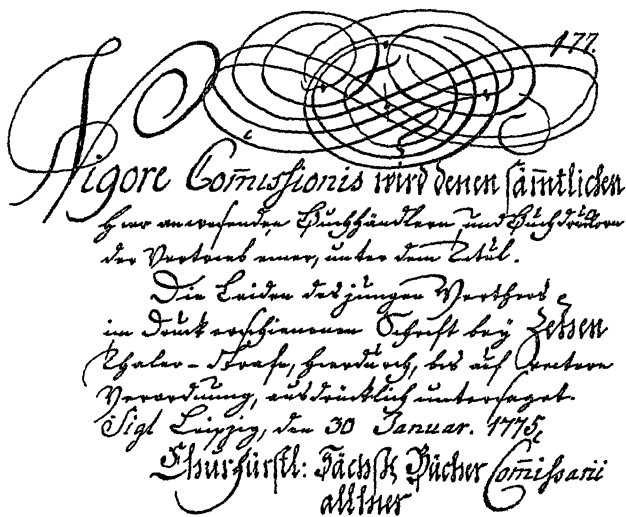 177.
Vigore Com̄issionis wird denen säm̄tlichen
hier anwesenden Buchhändlern und Buchdruckern
der Vertrieb einer, unter dem Titul.
Die Leiden des jungen Werthers
im Druck erschienenen Schrift bey Zehen
Thaler-Strafe, hierdurch, bis auf weitere
Verordnung, ausdrücklich untersaget.
Sigl Leipzig, den 30 Januar. 1775.
Churfürstl: Sächsl. Bücher Com̄issarii
allhier